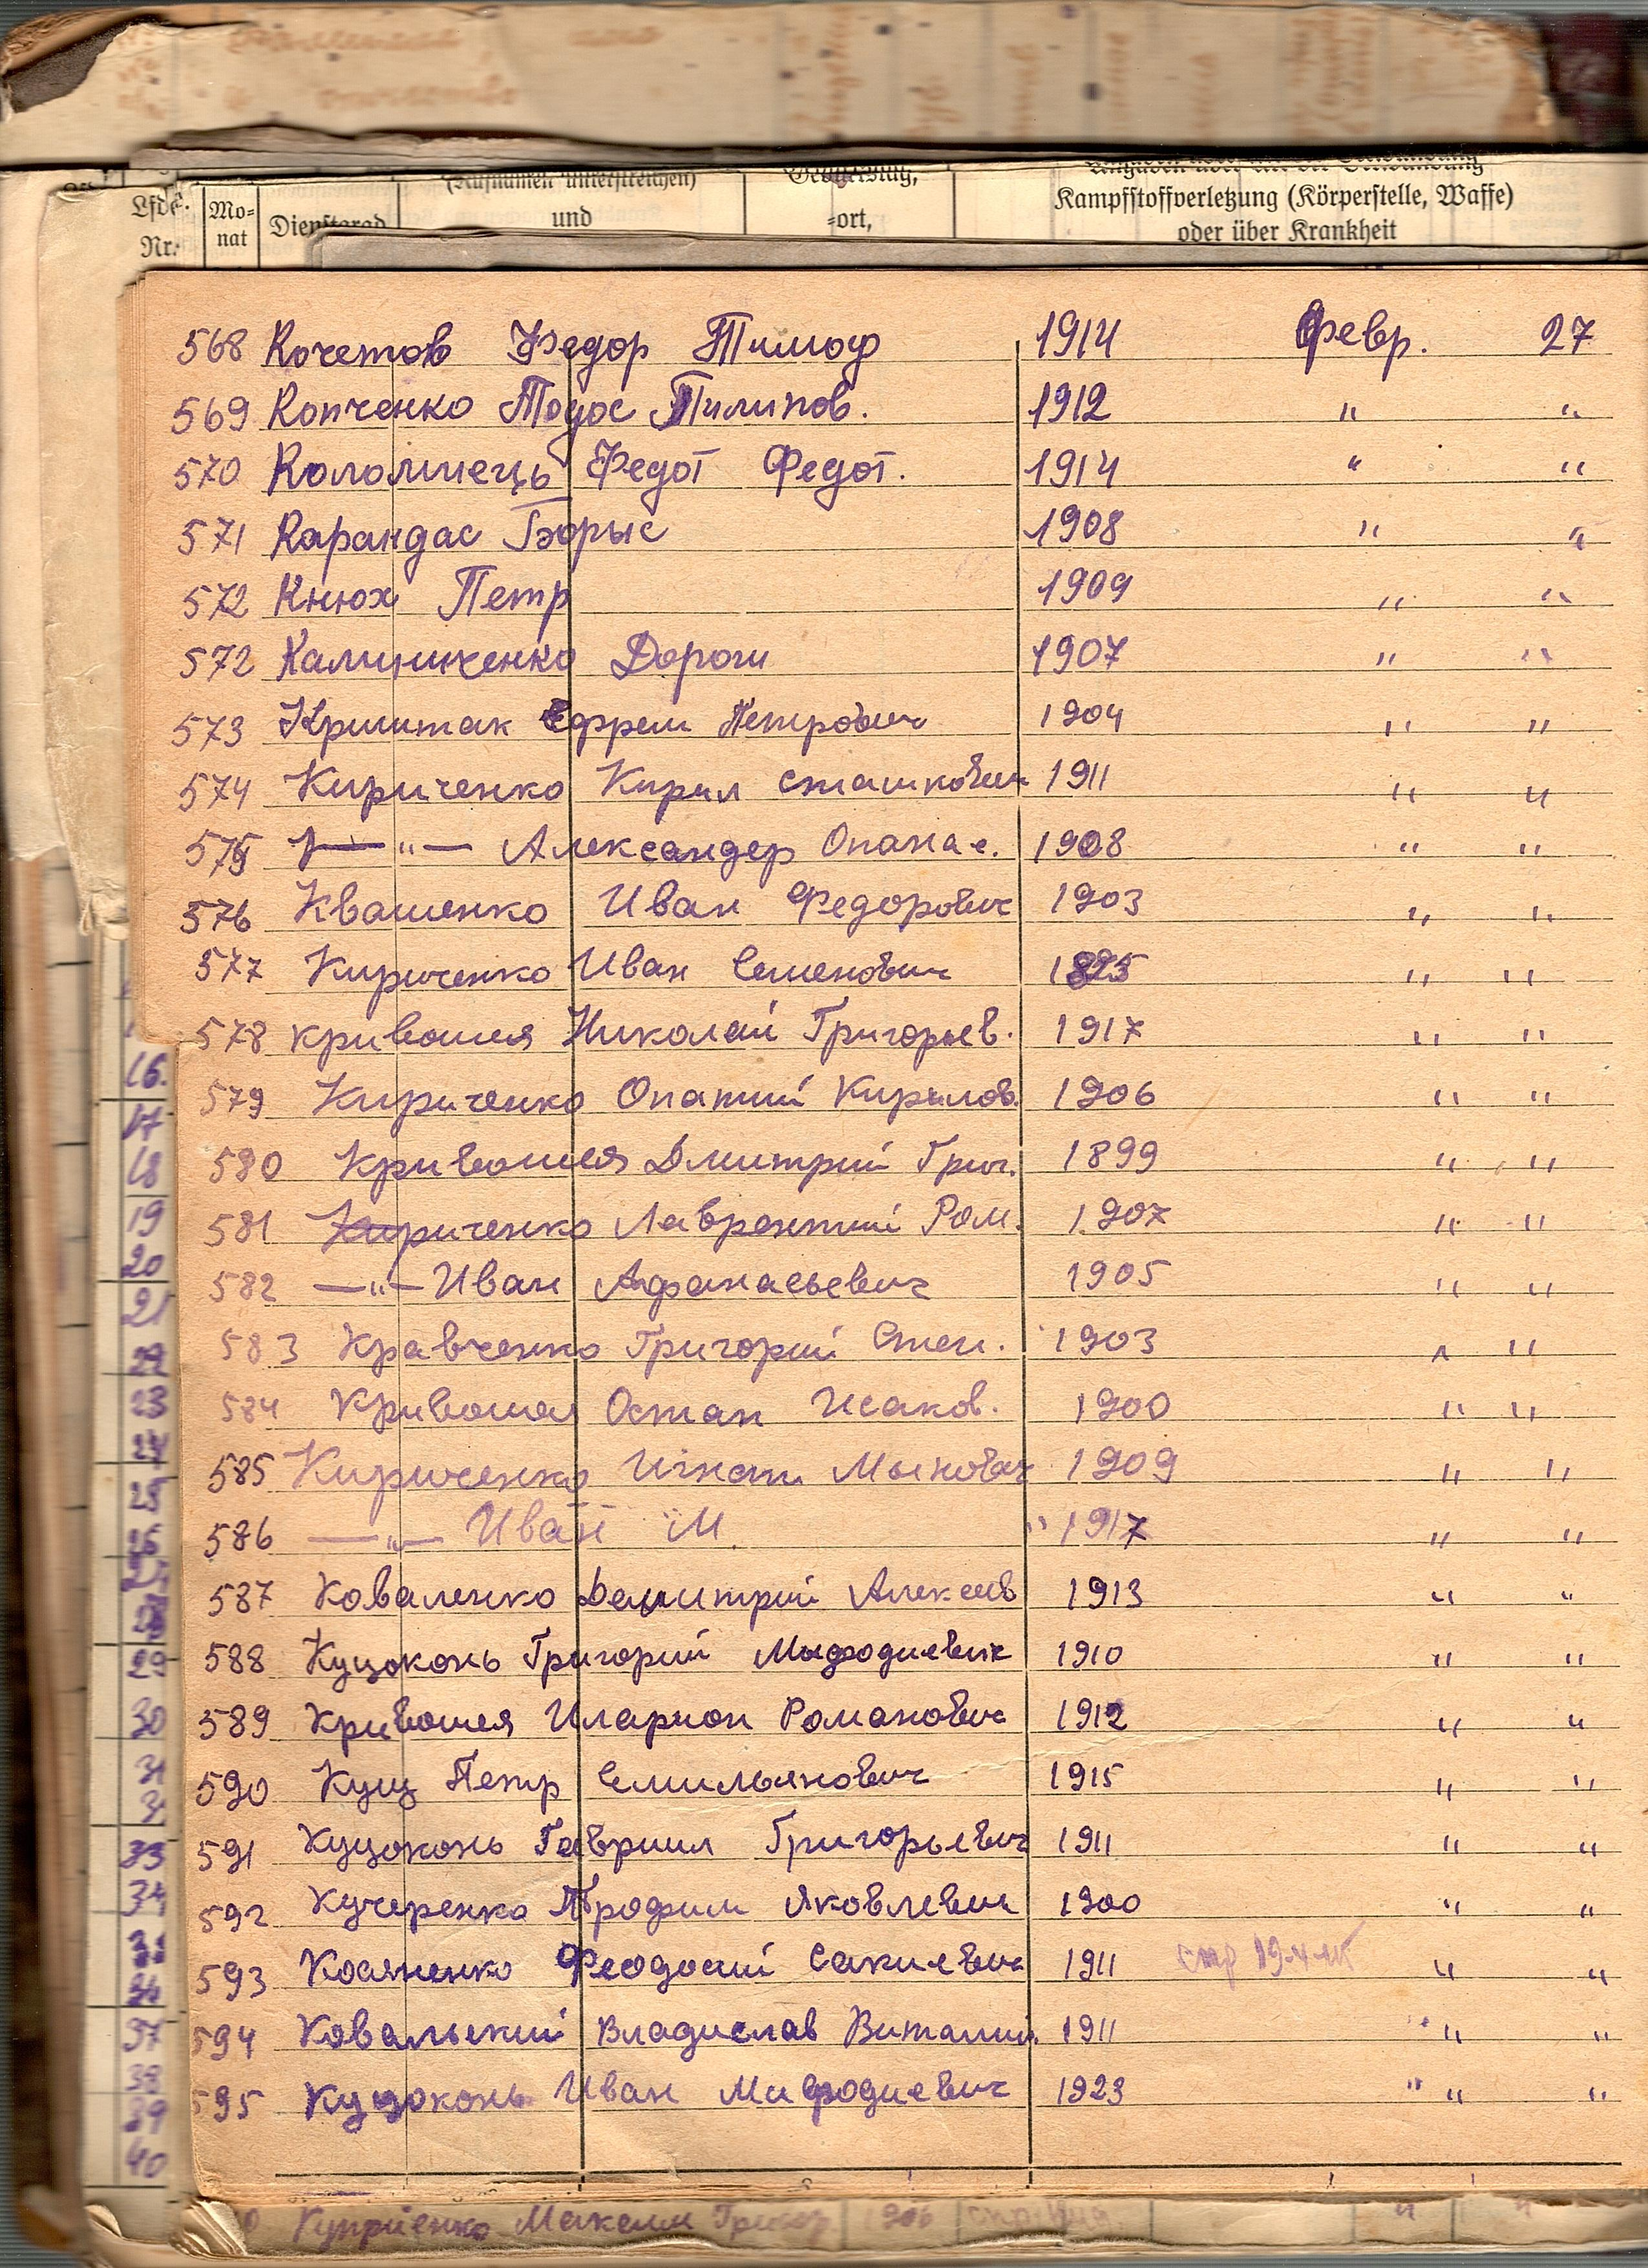 Lfde. Nr.
Mo-
nat
Dienstgrad
(Rufnamen unterstreichen)
und
Geburtstag,
-ort,
Kampfstoffverletzung (Körperstelle, Waffe)
oder über Krankheit
568 Кочетов Федор Тимоф 1914 Февр. 27
569 Копченко Тодос Пилипов. 1912 " "
570 Коломиець Федот Федот. 1914 " "
571 Карандас Борыс 1908 " "
572 Кнюх Петр 1909 " "
572 Калиниченко Дорош 1907 " "
573 Криштак Ефрем Петрович 1904 " "
574 Кириченко Кирил Сташкович 1911 " "
575 —"— Александер Опанас. 1908 " "
576 Квашенко Иван Федорович 1903 " "
577 Кириченко Иван Семенович " "
578 Кривошея Николай Григорьев. 1917 " "
579 Кириченко Опатий Кирилов. 1906 " "
580 Кривошея Дмитрий Григ. 1899 " "
581 Кириченко Лаврентий Ром. 1907 " "
582 —"— Иван Афанасьевич 1905 " "
583 Кравченко Григорий Степ. 1903 " "
584 Кривошея Остап Исаков. 1900 " "
585 Кириченко Игнат 1909 " "
586 —"— Иван И 1917 " "
587 Коваленко Демитрий Алексеев 1913 " "
588 Куцоконь Григорий Мыфодиевич 1910 " "
589 Кривошея Иларион Романович 1912 " "
590 Кущ Петр Емильянович 1915 " "
591 Куцоконь Гавриил Григорьевич 1911 " "
592 Кучеренко Трофим Яковлевич 1900 " "
593 Косяненко Феодосий 1911 " "
594 Ковальский Владислав Виталий. 1911 " "
595 Куцоконь Иван Мифодиевич 1923 " "
16.
17
18
19
20
21
22
23
24
25
26
29
30
33
34
37
38
39
40
Куприенко Максим Григор 906 " "